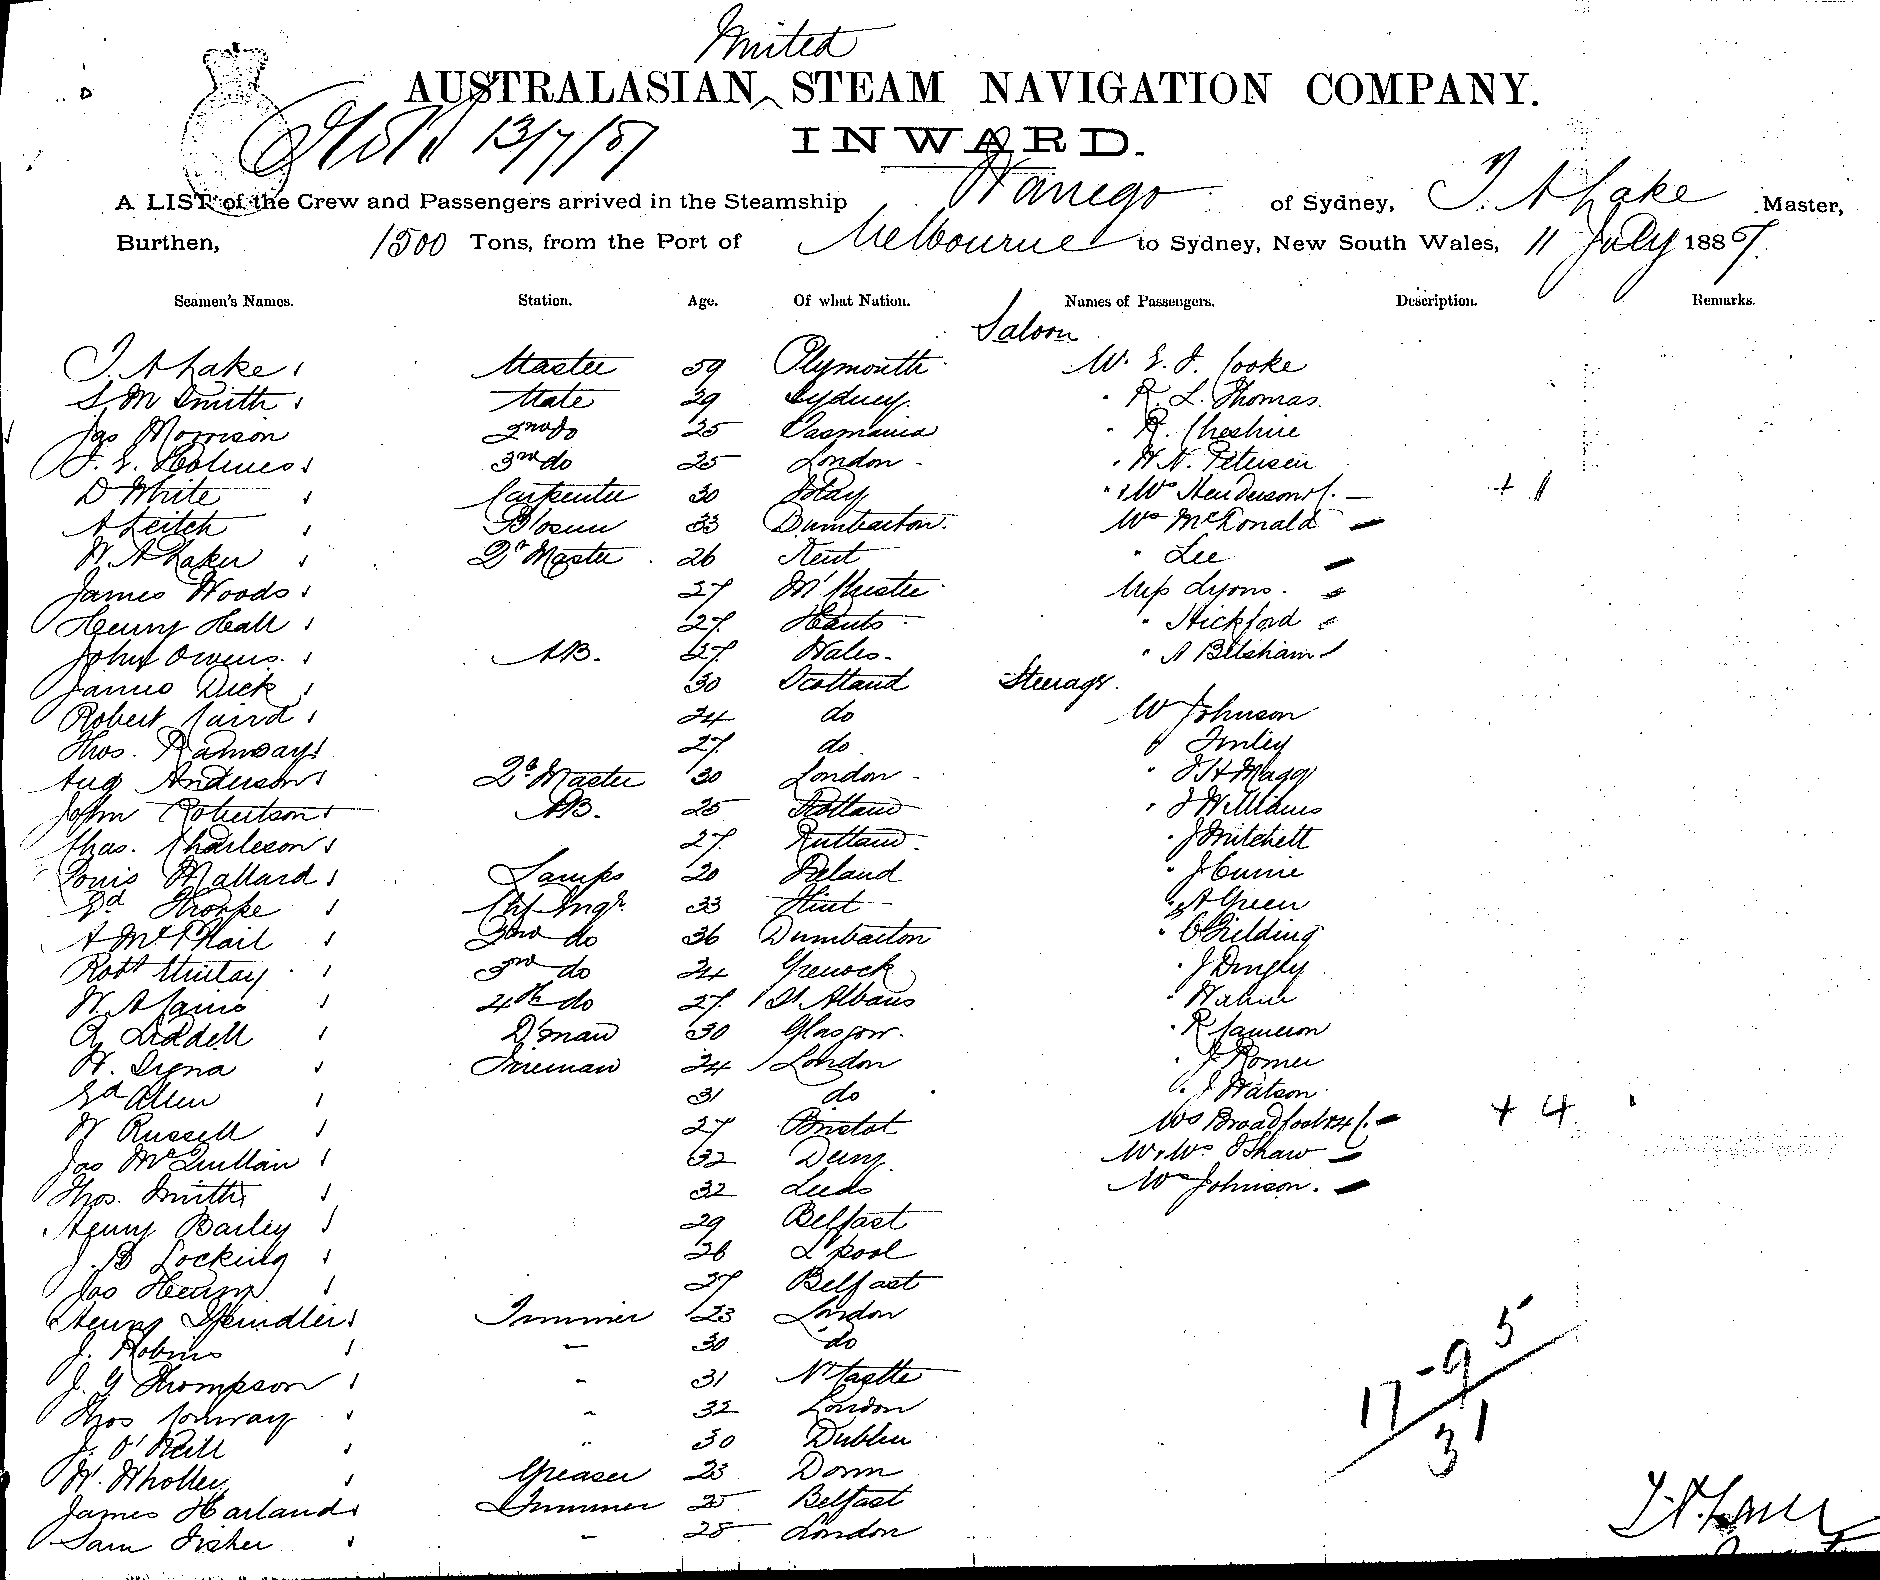 United
AUSTRALASIAN ‸ STEAM NAVIGATION COMPANY.
13/7/87 INWARD.
A LIST of the Crew and Passengers arrived in the Steamship Warrego of Sydney, T. A Lake Master,
Burthen, 1500 Tons, from the Port of Melbourne to Sydney, New South Wales, 11 July 1887.
Seamen's Names. Station. Age. Of what Nation. Names of Passengers. Description. Remarks.
Saloon
T. A Lake Master 59 Plymouth W. E. J. Cooke
S M Smith Mate 29 Sydney. " R. L. Thomas.
Jas Morrison 2nd do 25 Tasmania " R. Cheshire
J. E. Holmes 3rd do 25 London " H. N. Petersen
D White Carpenter 30 Islay " Mrs Henderson + 1
A Leitch Bosun 33 Dumbarton. Mrs McDonald
W. A Laker Qr Master 26 Kent " Lee
James Woods 27 Miss Lyons.
Henry Hall 27 Hants "
John Owens. AB. 27 Wales. " A Belsham
James Dick 30 Scotland Steerage.
Robert Caird 24 do W Johnson
Thos. Ramsay 27 do
Aug Anderson Qr Master 30 London "
John Robertson AB. 25 Scotland " J Williams
Chas. Charleson 27 Rutland. " J Mitchell
Louis Mallard Lamps 20 Ireland " J Currie
Ed Thorpe Chf Engr. 33 Flint " A Green
A McPhail 2nd do 36 Dumbarton " C Fielding
Robt 3rd do 24 Grenock " J Dingly
W. A 4th do 27 St Albans "
A Liddell D'man 30 Glasgow. " R Cameron
H. Fireman 24 London " J Romer
Ed Allen 31 do " J Watson
W Russell 27 Bristol Mrs Broadfoot + 4
Jas McQuillan 32 Derry Mr & Mrs Shaw
Thos. Smith 32 Leeds Mrs Johnson.
Henry Bailey 29 Belfast
J. B Locking 26 L'pool
Jas Henry 27 Belfast
Henry Spindler Trimmer 23 London
J. Robins - 30 do
J. G Thompson - 31 N'Castle
Thos Conway - 32 London
J. O'Neill " 30 Dublin
W. Wholley Greaser 23
James Harland Trimmer 25 Belfast
Sam Fisher - 28 London
17 - 9 5
31
T. A. Lake